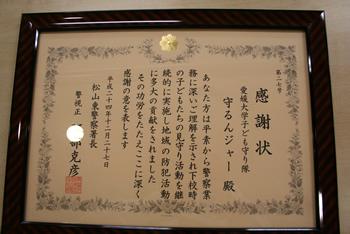 第二六号
感謝状
愛媛大学子ども守り隊
守るんジャー 殿
あなた方は平素から警察業
務に深いご理解を示され下校時
の子どもたちの見守り活動を継
続的に実施し地域の防犯活動
に多大の貢献をされました
その功労をたたえここに深く
感謝の意を表します
平成二十四年十二月二十七日
松山東警察署長
警視正 部克彦